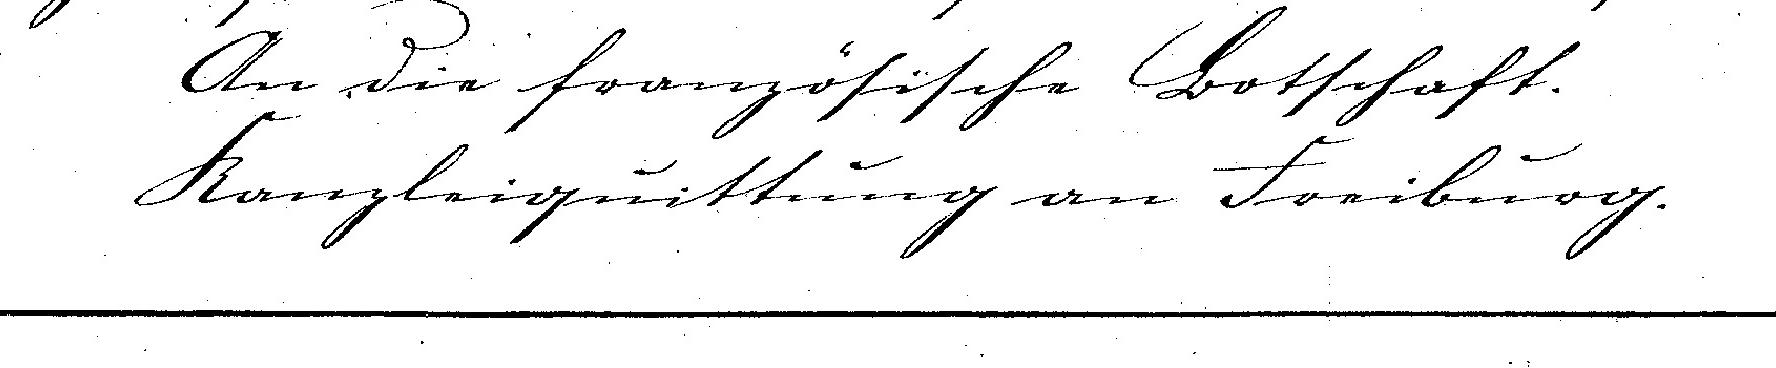 An die französische Botschaft.
Kanzleiquittung an Freiburg.